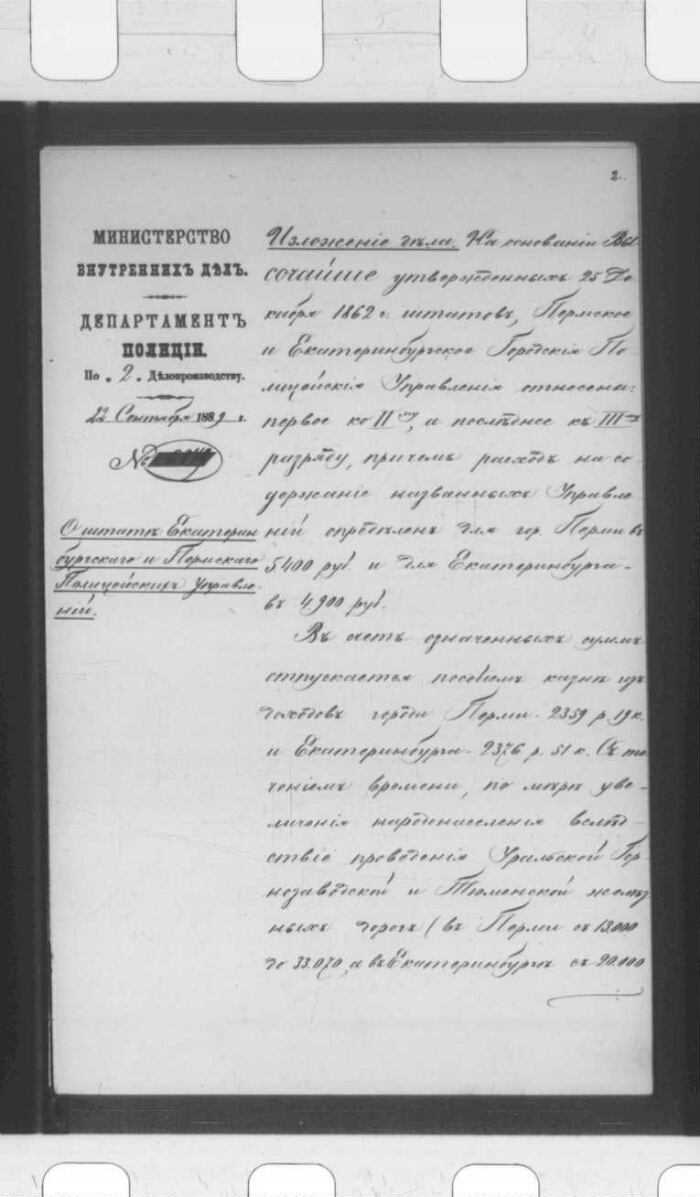 2.
МИНИСТЕРСТВО
ВНУТРЕННИХЪ ДѢЛЪ.
ДЕПАРТАМЕНТЪ
ПОЛИЦІИ.
По 2. Дѣлопроизводству.
22 Сентября 1889 г.
№
О штатѣ Екатерин
бургскаго и Пермскаго
Полицейскихъ Управле-
ній.
Изложеніе дѣла. На основаніи Вы
сочайше утвержденныхъ 25 Де
кабря 1862 г. штатовъ, Пермское
и Екатеринбургское Городскія По
лицейскія Управленія отнесены:
первое ко II му, а послѣднее къ III му
разряду, причемъ расходъ на со
держаніе названныхъ Управле
ній опредѣленъ для гор. Перми въ
5400 руб. и для Екатеринбурга -
въ 4.900 руб.
Въ счетъ означенныхъ суммъ
отпускается пособіемъ казнѣ изъ
доходовъ города Перми - 2359 р. 19 к.
и Екатеринбурга - 2376 р. 51 к. Съ те
ченіемъ времени, по мѣрѣ уве-
личенія народонаселенія вслѣд
ствіе проведенія Уральской Гор-
нозаводской и Тюменской желѣз
ныхъ дорогъ (въ Перми съ 13.000
до 33.070, а въ Екатеринбургѣ съ 20.000